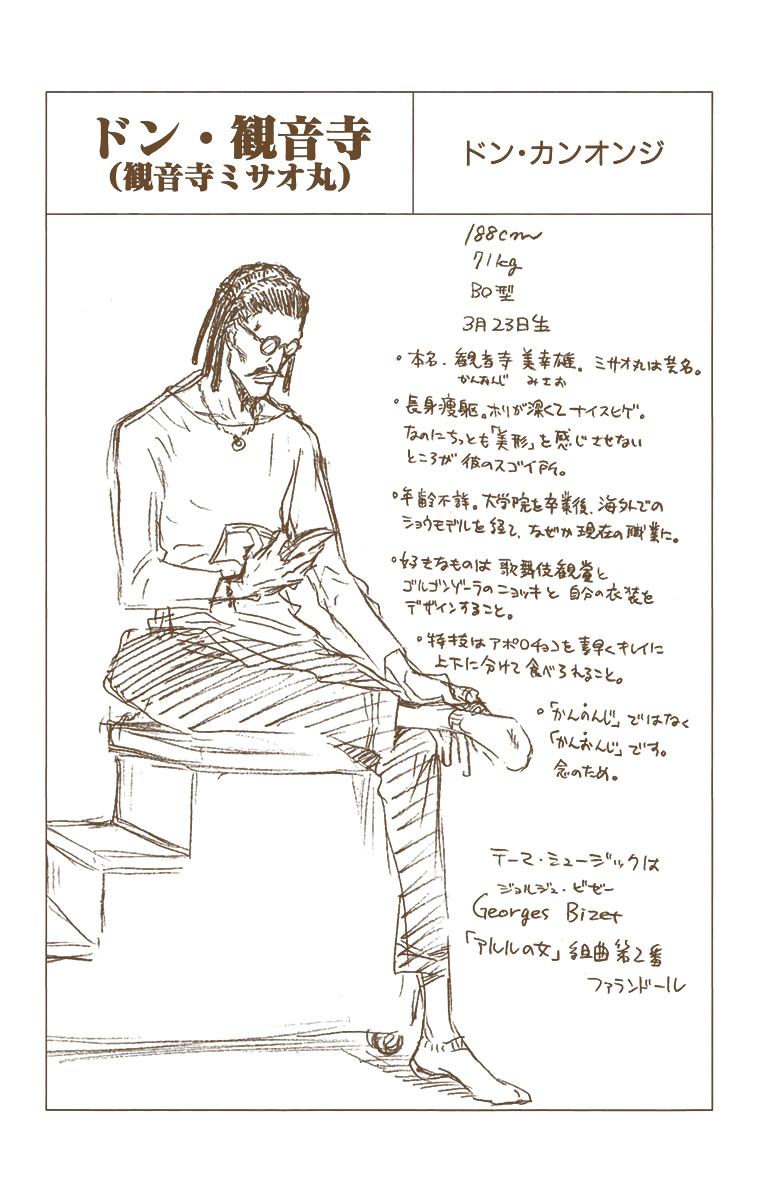 ドン・観音寺
(観音寺ミサオ丸)
ドン・カンオンジ
188cm
71kg
BO型
3月23日生
・本名、観音寺 美幸雄。ミサオ丸は芸名。
かんおんじ みさお
・長身痩躯。ホリが深くてナイスヒゲ。
なのにちっとも「美形」を感じさせない
ところが彼のスゴイ所。
・年齢不詳。大学院を卒業後、海外での
ショウモデルを経て、なぜか現在の職業に。
・好きなものは 歌舞伎観賞と
ゴルゴンゾーラのニョッキと 自分の衣装を
デザインすること。
・特技はアポロチョコを素早くキレイに
上下に分けて食べられること。
・「かんのんじ」ではなく
「かんおんじ」です。
念のため。
テーマ・ミュージックは
ジョルジュ・ビゼー
Georges Bizet
「アルルの女」組曲第2番
ファランドール